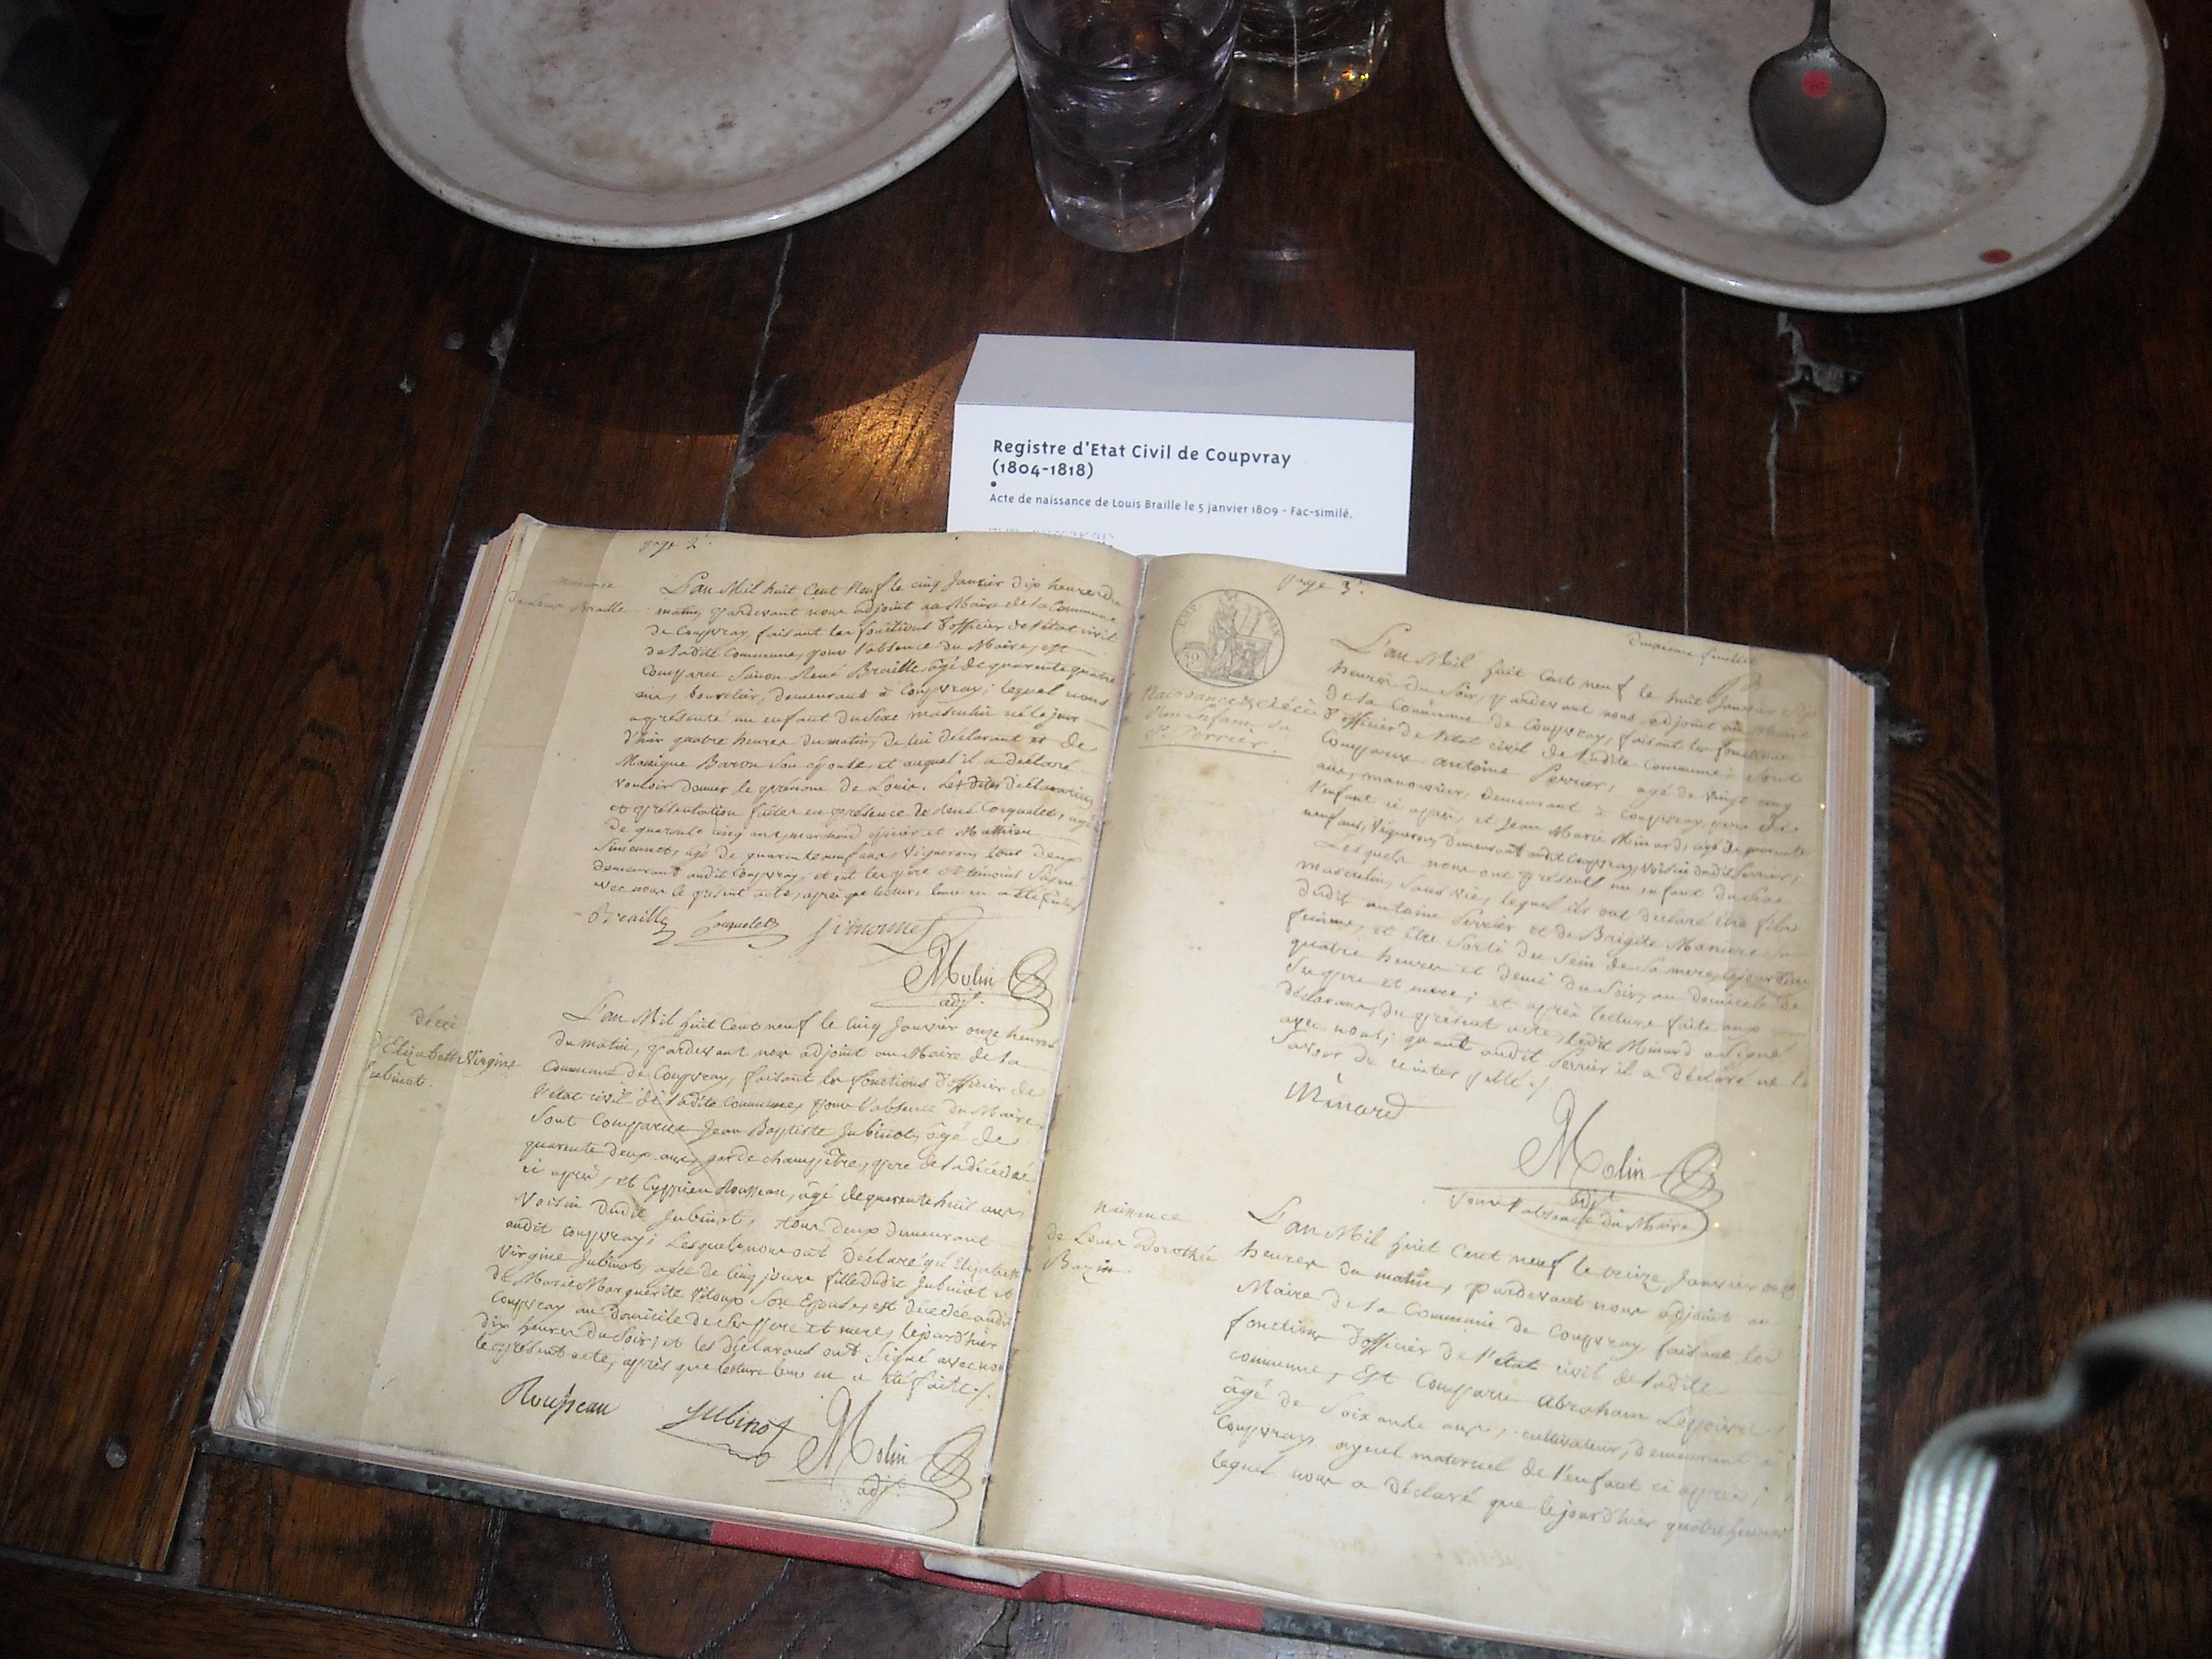 Registre d'Etat Civil de Coupvray
(1804-1818)
Acte de naissance de Louis Braille le 5 janvier 1809 - Fac-similé.
page 2
naissance
De Louis Braille
L'an Mil huit Cent Neuf le cinq Janvier dix heures du
matin, pardevant nous adjoint au Maire de la Commune
de Coupvray, faisant les fonctions d'officier de l'état civil
de ladite Commune, pour l'absence du Maire, est
Comparu Simon René Braille, âgé de quarante quatre
ans, bourelier, demeurant à Coupvray; lequel nous
a présenté un enfant du Sexe masculin né le jour
d'hier quatre heures du matin, de lui déclarant et de
Monique Baron Son épouse, et auquel il a déclaré
vouloir donner le prénom de Louis. Les dites déclaration
et présentation faites en présence de Coquelet, agé
de quarante cinq ans, marchand épicier et Mathieu
Simonnet, âgé de quarante neuf ans, Vigneron, tous deux
demeurant audit Coupvray, et ont les père et témoins Signé
avec nous le présent acte, après que lecture leur en a été faite
Braille Coquelet Simonnet
Molin
adj.t
Décès
d'Elizabeth Virgine
Jubinot.
L'an Mil huit Cent neuf le Cinq Janvier onze heures
du matin, pardevant nous adjoint au Maire de la
Commune de Coupvray, faisant les fonctions d'officier de
l'état civil de ladite Commune, pour l'absence du Maire,
Sont Comparus Jean Baptiste Jubinot, âgé de
quarante deux ans, garde champêtre, père de la décédée
ci après, et Cyprien Rousseau, âgé de quarante huit ans,
Voisin dudit Jubinot, tous deux demeurant
audit Coupvray; Lesquels nous ont déclaré qu'Elizabeth
Virgine Jubinot, agée de Cinq jours fille dudit Jubinot et
de Marie Marguerite Son Epouse, est décédée audit
Coupvray au Domicile de Ses père et mere, le jour d'hier
dix heures du Soir, et les déclarans ont Signé avec nous
le présent acte, après que lecture leur en a été faite./.
Rousseau Jubinot Molin
adj.t
page 3
Deuxieme feuillet
Naissance & décès
d'un Enfant du
S. Perrier.
L'an Mil huit Cent neuf le huit Janvier
heures du Soir, pardevant nous adjoint au Maire
de la Commune de Coupvray, faisant les fonctions
d'officier de l'état civil de ladite Commune, Sont
Comparus Antoine Perrier, agé de vingt cinq
ans, manouvrier, demeurant à Coupvray, père de
l'enfant ci après, et Jean Marie Minard, agé de quarante
neuf ans, Vigneron, demeurant audit Coupvray, Voisin dudit Perrier;
Lesquels nous ont présenté un enfant du Sexe
masculin, Sans vie, lequel ils ont déclaré être fils
dudit Antoine Perrier et de Brigite Sa
femme, et être Sorti du Sein de Sa mere, le jour d'hier
quatre heures et demie du Soir, au domicile de
Ses père et mere; et après lecture faite aux
déclarans, du présent acte, ledit Minard a Signé
avec nous; quant audit Perrier il a déclaré ne le
Savoir de ce interpellé./
Minard
Molin
adj.t
Pour l'absence du Maire
naissance
de Louis Dorothée
Bazin
L'an Mil huit Cent neuf le treize Janvier onze
heures du matin, pardevant nous adjoint au
Maire de la Commune de Coupvray, faisant les
fonctions d'officier de l'état civil de ladite
commune, Est Comparu Abraham
âgé de Soixante ans, cultivateur, demeurant à
Coupvray, ayeul maternel de l'enfant ci après;
lequel nous a déclaré que le jour d'hier quatre heures